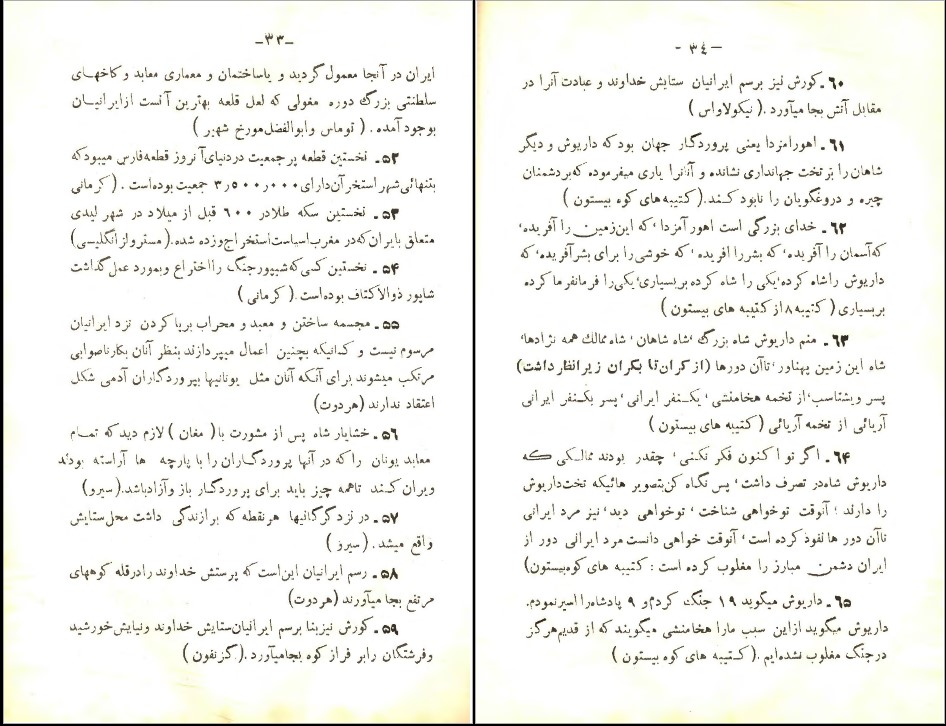 -۳۴-
۶۰ـ کورش نیز برسم ایرانیان ستایش خداوند و عبادت آنرا در
مقابل آتش بجا میآورد.( نیکولاواس )
۶۱ـ اهورامزدا یعنی پروردگار جهان بود که داریوش و دیگر
شاهان را بر تخت جهانداری نشانده و آنانرا یاری میفرموده که بر دشمنان
چیره و دروغگویان را نابود کنند.( کتیبه‌های کوه بیستون )
۶۲ـ خدای بزرگی است اهور آمزدا، که این زمین را آفریده،
که آسمان را آفریده، که بشر را افریده، که خوشی را برای بشر آفریده، که
داریوش را شاه کرده، یکی را شاه کرده بر بسیاری، یکی را فرمانفرما کرده
بر بسیاری ( کتیبه ۸ از کتیبه های بیستون )
۶۳ـ منم داریوش شاه بزرگ، شاه شاهان، شاه ممالك همه نژادها،
شاه این زمین پهناور، تا آن دورها (از کران تا بکران زیر انظار داشت)
پسر ویشتاسب، از تخمه هخامنشی، یکنفر ایرانی، پسر یکنفر ایرانی
آریائی از تخمه آریائی ( کتیبه های بیستون )
۶۴ـ اگر تو اکنون فکر نکنی، چقدر بودند ممالکی که
داریوش شاه در تصرف داشت، پس نگاه کن بتصویر هائیکه تخت داریوش
را دارند؛ آنوقت توخواهی شناخت، توخواهی دید، نیز مرد ایرانی
تا آن دور ها نفوذ کرده است، آنوقت خواهی دانست مرد ایرانی دور از
ایران دشمن مبارز را مغلوب کرده است : کتیبه های کوه بیستون)
۶۵ـ داریوش میگوید ۱۹ جنگ کردم و ۹ پادشاه را اسیر نمودم.
داریوش میگوید از این سبب مارا هخامنشی میگویند که از قدیم هرگز
در جنگ مغلوب نشده‌ایم .( کتیبه های کوه بیستون )
-۳۳-
ایران در آنجا معمول گردید و یا ساختمان و معماری معابد و کاخهای
سلطنتی بزرگ دوره مغولی که لعل قلعه بهترین آنست از ایرانیان
بوجود آمده . ( توماس و ابوالفضل مورخ شهیر )
۵۲ـ نخستین قطعه پر جمعیت در دنیای آنروز قطعه فارس میبود که
بتنهائی شهر استخر آن دارای ۳٫۵۰۰٫۰۰۰ جمعیت بوده است . ( کرمانی
۵۳ـ نخستین سکه طلا در ۶۰۰ قبل از میلاد در شهر لیدی
متعلق بایران که در مغرب اسیاست استخراج و زده شده.( مسترولز انگلیسی)
۵۴ـ نخستین کسی که شیپور جنگ را اختراع و بمورد عمل گذاشت
شاپور ذوالاکتاف بوده است.( کرمانی )
۵۵ـ مجسمه ساختن و معبد و محراب برپا کردن نزد ایرانیان
مرسوم نیست و کسانیکه بچنین اعمال میپردازند بنظر آنان بکار ناصوابی
مرتکب میشوند برای آنکه آنان مثل یونانیها بپروردگاران آدمی شکل
اعتقاد ندارند (هردوت)
۵۶ـ خشایار شاه پس از مشورت با ( مغان ) لازم دید که تمام
معابد یونان را که در آنها پروردگاران را با پارچه ها آراسته بودند
ویران کنند تا همه چیز باید برای پروردگار باز و آزاد باشد.( سیرو )
۵۷ـ در نزد گرگانیها هر نقطه که برازندگی داشت محل ستایش
واقع میشد . ( سیرز )
۵۸ـ رسم ایرانیان این است که پرستش خداوند را در قله کوههای
مرتفع بجا میآورند (هردوت)
۵۹ـ کورش نیز بنا برسم ایرانیان ستایش خداوند و نیایش خورشید
و فرشتگان را بر فراز کوه بجا میآورد .( گزنفون )